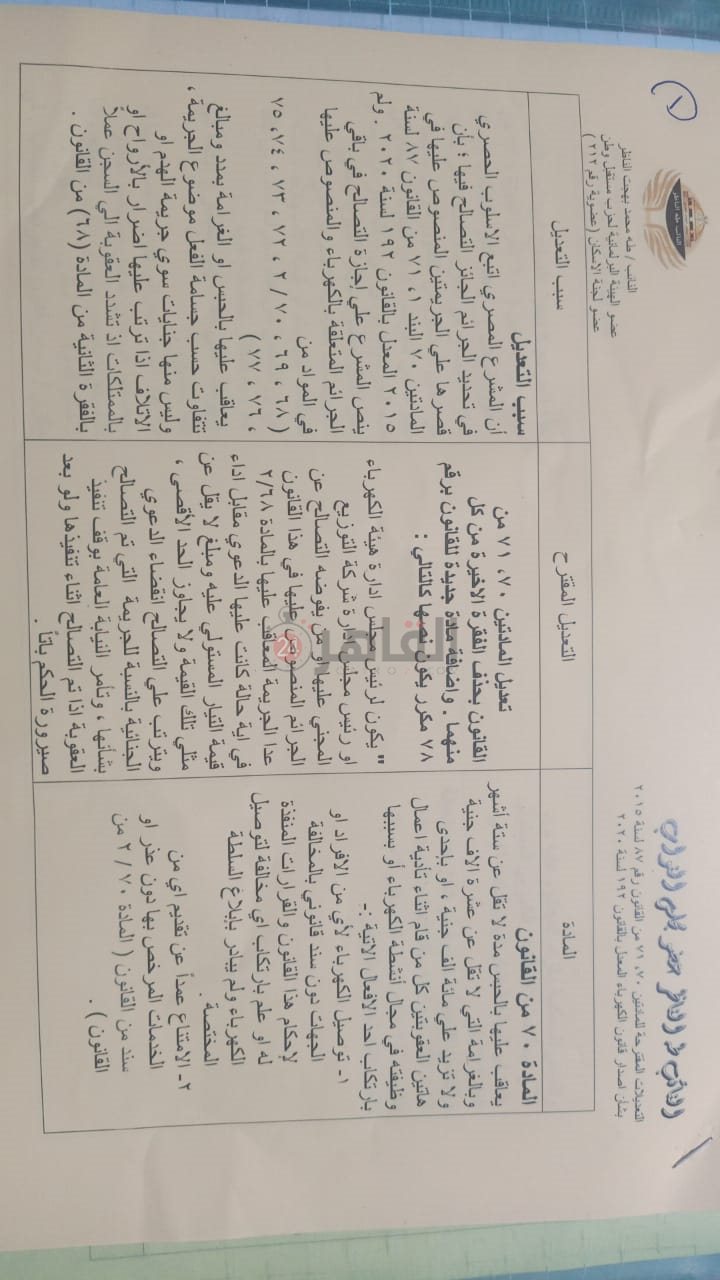 ١
النائب طه الناظر
النائب / طه محمد بهجت الناظر
عضو الهيئة البرلمانية لحزب مستقبل وطن
عضو لجنة الاسكان ( عضوية رقم ٢١٢ )
النائب طه الناظر عضو مجلس النواب
التعديلات المقترحة للمادتين ٧٠، ٧١ من القانون رقم ٨٧ لسنة ٢٠١٥
بشان اصدار قانون الكهرباء المعدل بالقانون ١٩٢ لسنة ٢٠٢٠
المادة
التعديل المقترح
سبب التعديل
المادة ٧٠ من القانون
يعاقب عليها بالحبس مدة لا تقل عن ستة أشهر
وبالغرامة التي لا تقل عن عشرة الاف جنية
ولا تزيد علي مائة الف جنية ، او بإحدى
هاتين العقوبتين كل من قام اثناء تأدية اعمال
وظيفته في مجال أنشطة الكهرباء أو بسببها
بارتكاب احد الافعال الاتية :-
١- توصيل الكهرباء لأي من الافراد او
الجهات دون سند قانوني بالمخالفة
لإحكام هذا القانون و القرارات المنفذة
له او علم بارتكاب اي مخالفة لتوصيل
الكهرباء ولم يبادر بإبلاغ السلطة
المختصة .
٢- الامتناع عمداً عن تقديم اي من
الخدمات المرخص بها دون عذر او
سند من القانون ( المادة ٧٠ / ٢ من
القانون ) .
تعديل المادتين ٧٠، ٧١ من
القانون بحذف الفقرة الاخيرة من كل
منهما . واضافة مادة جديدة للقانون برقم
٧٨ مكرر يكون نصها كالتالي :
" يكون لرئيس مجلس ادارة هيئة الكهرباء
او رئيس مجلس ادارة شركة التوزيع
المجني عليها او من يفوضه التصالح عن
الجرائم المنصوص عليها في هذا القانون
عدا الجريمة المعاقب عليها بالمادة ٢/٦٨
في اية حالة كانت عليها الدعوي مقابل اداء
قيمة التيار المستولي عليه ومبلغ لا يقل عن
مثلي تلك القيمة ولا يجاوز الحد الأقصى ،
ويترتب علي التصالح انقضاء الدعوي
الجنائية بالنسبة للجريمة التي تم التصالح
بشأنها ، وتأمر النيابة العامة بوقف تنفيذ
العقوبة اذا تم التصالح اثناء تنفيذها ولو بعد
صيرورة الحكم باتاً .
سبب التعديل
أن المشرع المصري اتبع الاسلوب الحصري
في تحديد الجرائم الجائز التصالح فيها ؛ بأن
قصرها علي الجريمتين المنصوص عليها في
المادتين ٧٠ البند ١، ٧١ من القانون ٨٧ لسنة
٢٠١٥ المعدل بالقانون ١٩٢ لسنة ٢٠٢٠ . ولم
ينص المشرع علي إجازة التصالح في باقي
الجرائم المتعلقة بالكهرباء والمنصوص عليها
في المواد من
( ٦٨ ، ٦٩ ، ٢ / ٧٠ ، ٧٢ ، ٧٣ ، ٧٤ ، ٧٥
، ٧٦ ، ٧٧ )
يعاقب عليها بالحبس او الغرامة بمدد ومبالغ
تتفاوت حسب جسامة الفعل موضوع الجريمة ،
وليس منها جنايات سوي جريمة الهدم او
الاتلاف اذا ترتب عليها اضرار بالأرواح او
بالممتلكات اذ تشدد العقوبة الي السجن عملاً
بالفقرة الثانية من المادة (٦٨) من القانون .
القاهرة 24